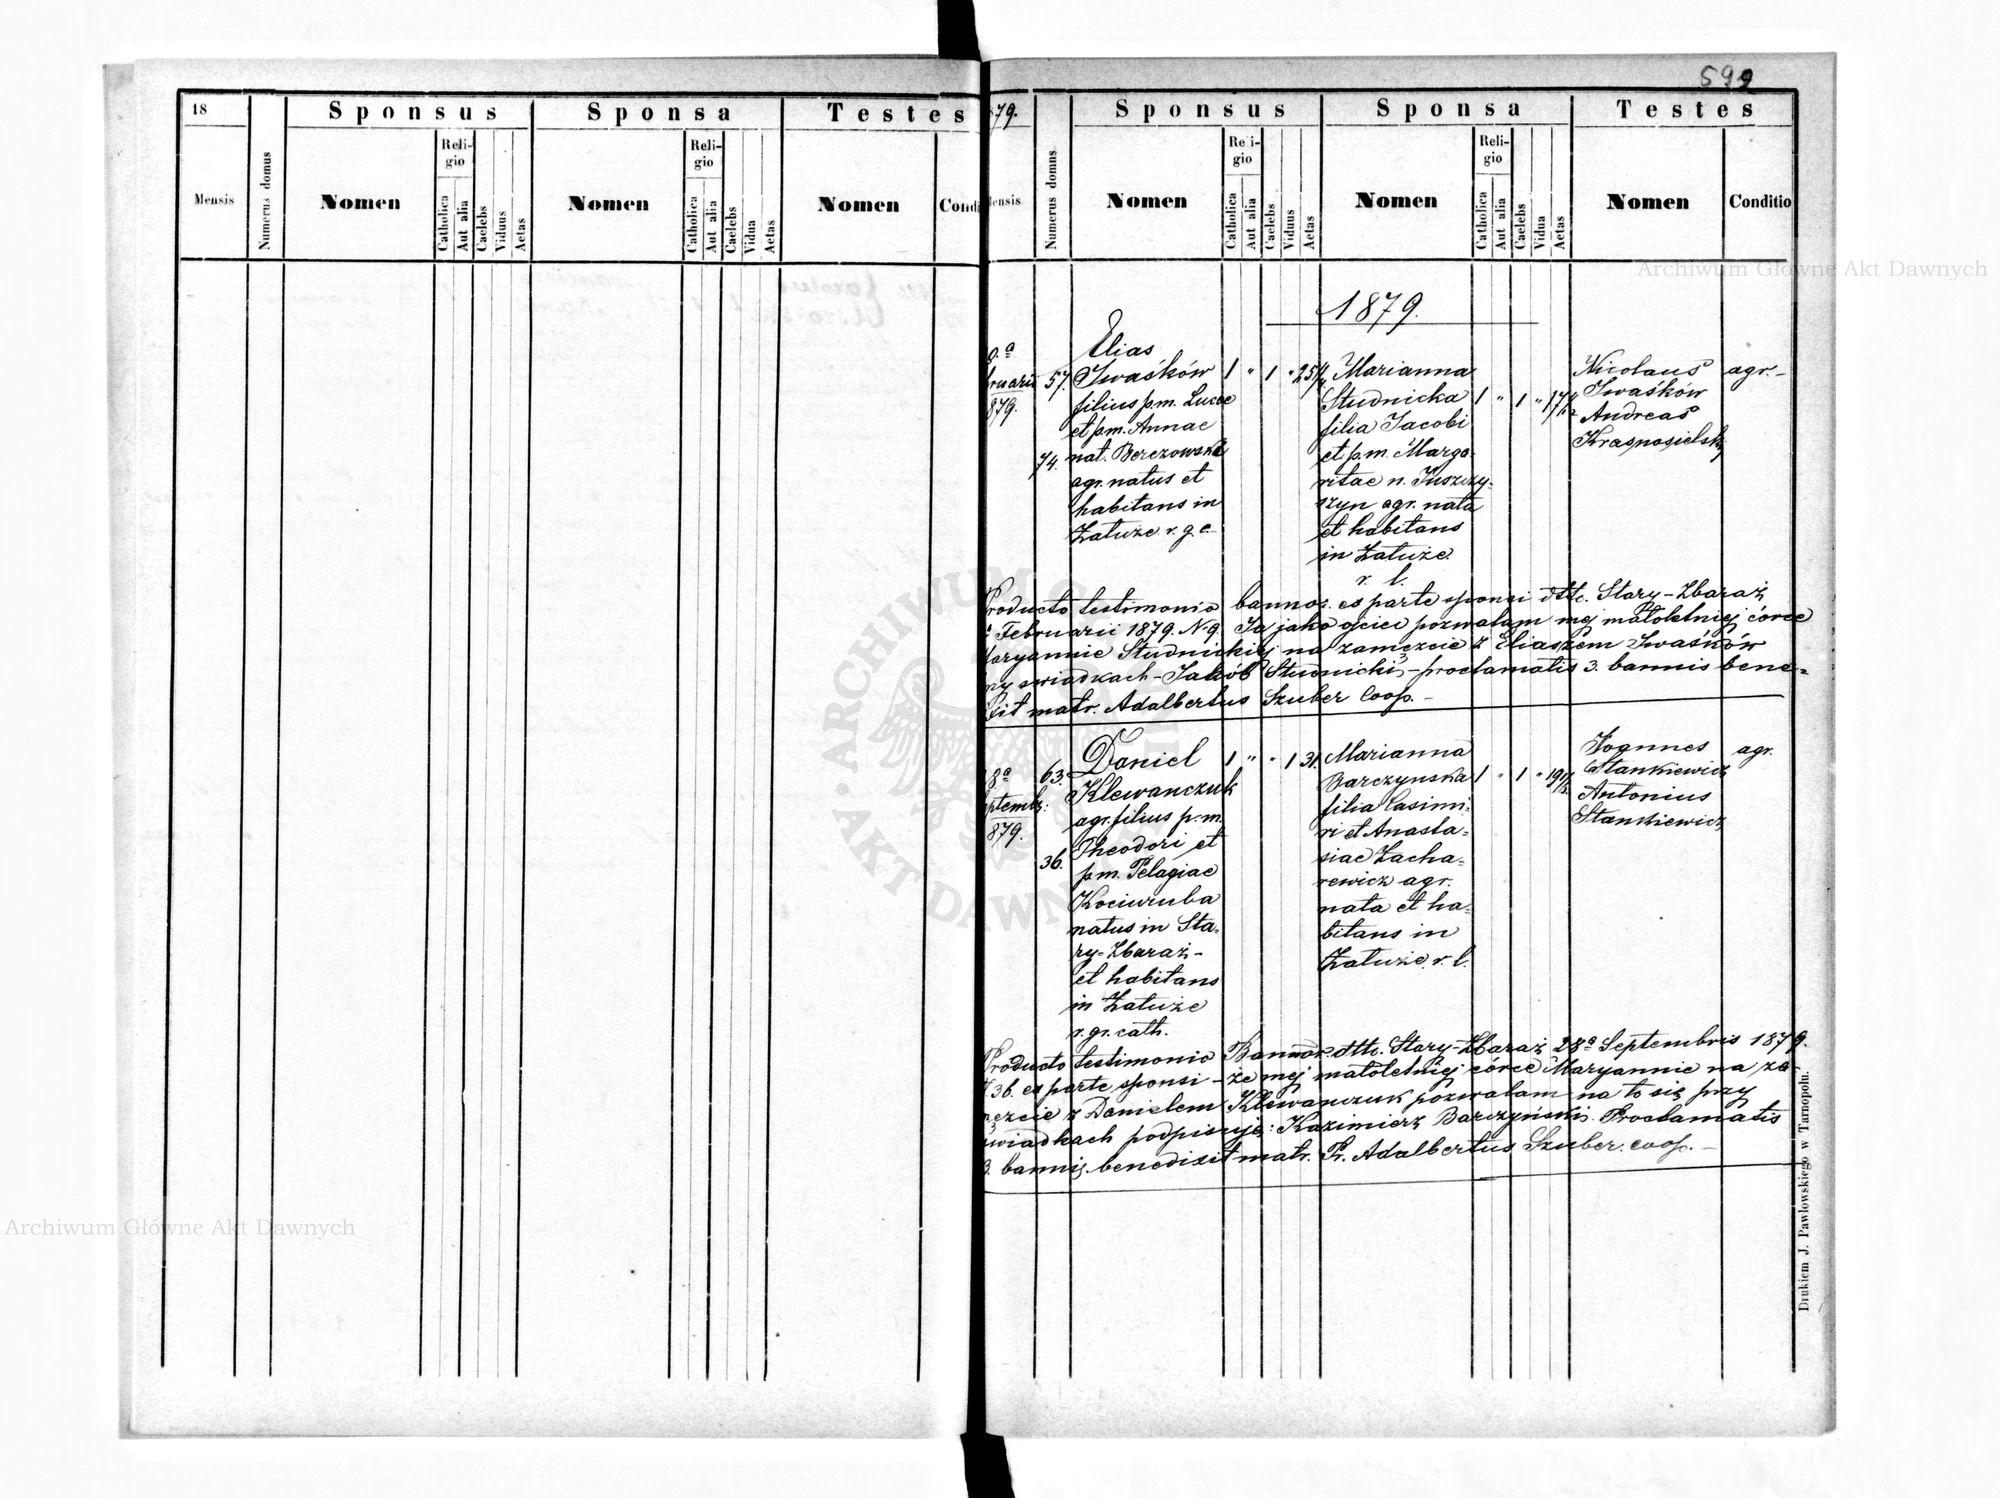 18
Sponsus
Sponsa
Testes
Mensis
Numerus domus
Nomen
Religio
Catholica
Aut alia
Caelebs
Viduus
Aetas
Nomen
Religio
Catholica
Aut alia
Caelebs
Vidua
Aetas
Nomen
Condi
599
879.
Sponsus
Sponsa
Testes
Mensis
Numerus domus
Nomen
Religio
Catholica
Aut alia
Caelebs
Viduus
Aetas
Nomen
Religio
Catholica
Aut alia
Caelebs
Vidua
Aetas
Nomen
Conditio
1879.
9.ª
bruarii
879.
57.
74.
Elias
Iwaśków
filius p.m. Lucae
et p.m. Annae
nat. Berezowska
agr. natus et
habitans in
Załuże r. g. c.
1 " 1 "
Marianna
Studnicka
filia Jacobi
et p.m. Marga
ritae n. Juszczy-
szyn agr. nata
et habitans
in Załuże
r. l.
1 " 1 "
Nicolaus
Iwaśków
Andreas
Krasnosielski
agr.-
Producto testimonio bannor. ex parte sponsi dtto. Stary-Zbaraż
Februarii 1879. N. 9. Ja jako ojciec pozwalam mej małoletniej córce
Maryannie Studnickiej na zamęzcie z Eliaszem Iwaśków
przy świadkach - Jakób Studnicki, - proclamatis 3. bannis bene=
dixit matr. Adalbertus Szuber Coop. -
8ª
ptembr:
879.
63.
36.
Daniel
Klewanczuk
agr. filius p.m.
Theodori et
p.m. Pelagiae
Kociuruba
natus in Sta-
ry-Zbaraż -
et habitans
in Załuże
r. gr. cath.
1 " " 1 31.
Marianna
Barczynska
filia Casimi-
ri et Anasta=
siae Zacha=
rewicz agr.
nata et ha-
bitans in
Załuże. r. l.
1 " 1 "
Joannes
Stankiewicz
Antonius
Stankiewicz
agr.
Producto testimonio Bannor. dtto. Stary-Zbaraż 28ª Septembris 1879.
N 36. ex parte sponsi - że mej małoletniej córce Maryannie na za-
męzcie z Danielem Klewanczuk pozwalam na to się przy
świadkach podpisuję: Kazimierz Barczyński. Proclamatis
3. bannis. benedixit matr. Pr. Adalbertus Szuber. coop. -
Drukiem J. Pawłowskiego w Tarnopolu.
Archiwum Główne Akt Dawnych
Archiwum Główne Akt Dawnych